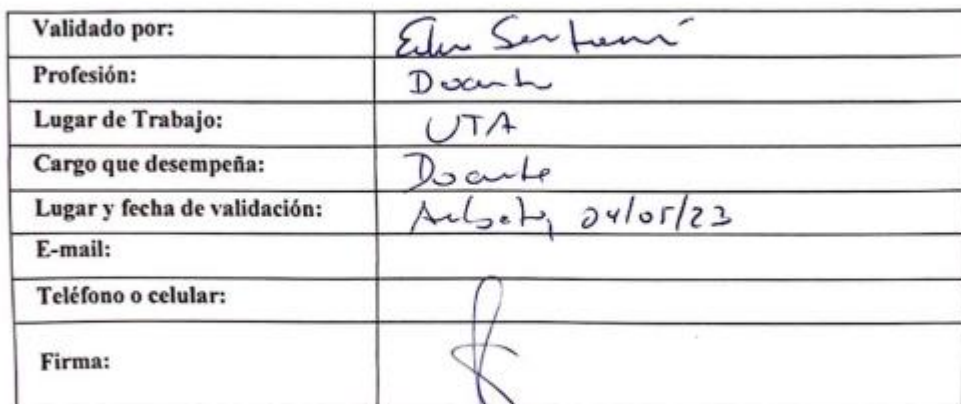 Validado por:
Profesión: Docente
Lugar de Trabajo: UTA
Cargo que desempeña: Docente
Lugar y fecha de validación: Ambato, 04/05/23
E-mail:
Teléfono o celular:
Firma: